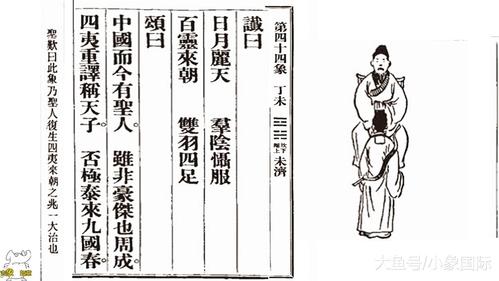 第四十四象 丁未 ䷿ 坎下離上 未濟
讖曰
日月麗天 羣陰懾服
百靈來朝 雙羽四足
頌曰
中國而今有聖人。 雖非豪傑也周成。
四夷重譯稱天子。 否極泰來九國春。
聖歎曰此象乃聖人復生四夷來朝之兆一大治也
大鱼号/小象国际